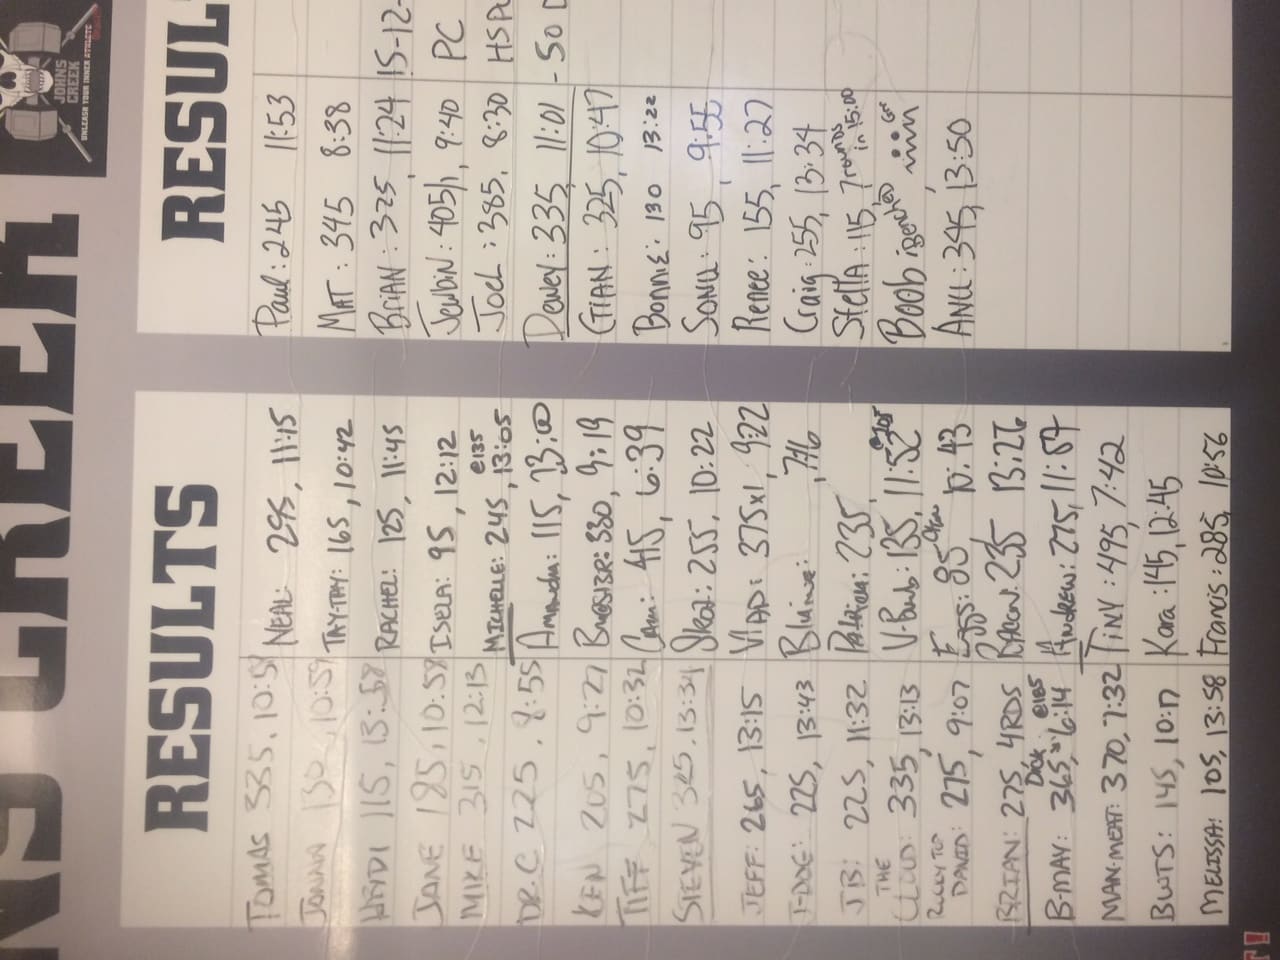 JOHNS
CREEK
UNLEASH YOUR INNER ATHLETE
RESULTS
TOMAS 335, 10:51
130, 10:59
HEIDI 115, 13:58
JANE 185, 10:58
MIKE 315, 12:13
DR.C 225, 8:55
KEN 205, 9:27
TIFF 275, 10:32
STEVEN 325, 13:34
JEFF: 265, 13:15
J-DOE: 225, 13:43
JB: 225, 11:32
THE
335, 13:13
DAVID: 275, 9:07
BRIAN: 275, 4RDS
B-MAY: 365, 6:14 @185
MAN-MEAT: 370, 7:32
BUTS: 145, 10:17
MELISSA: 105, 13:58
NEAL: 295, 11:15
TAY-TAY: 165, 10:42
RACHEL: 125, 11:45
ISELA: 95, 12:12
MICHELLE: 245, 13:05 @135
Amanda: 115, 13:00
330, 9:19
Cam: 415, 6:39
255, 10:22
VLAD: 375x1, 9:22
Blaine: 7:46
235,
V-Bomb: 135, 11:52
Eggs: 85 10:43
235 13:26
Andrew: 275, 11:54
TINY: 495, 7:42
Kara: 145, 12:45
Francis: 285, 10:56
RESUL
Paul: 245 11:53
MAT: 345 8:38
BRIAN: 325, 11:24 15-12-
405/1, 9:40 PC
JOEL: 385, 8:30 HSPU
Dewey: 335, 11:01 - 50 D
GIAN: 325, 10:47
BONNIE: 130 13:22
SONU: 95, 9:55
Renee: 155, 11:27
Craig: 255, 13:34
Stella: 115, 7 rounds in 15:00
Boob
ANU: 345, 13:50